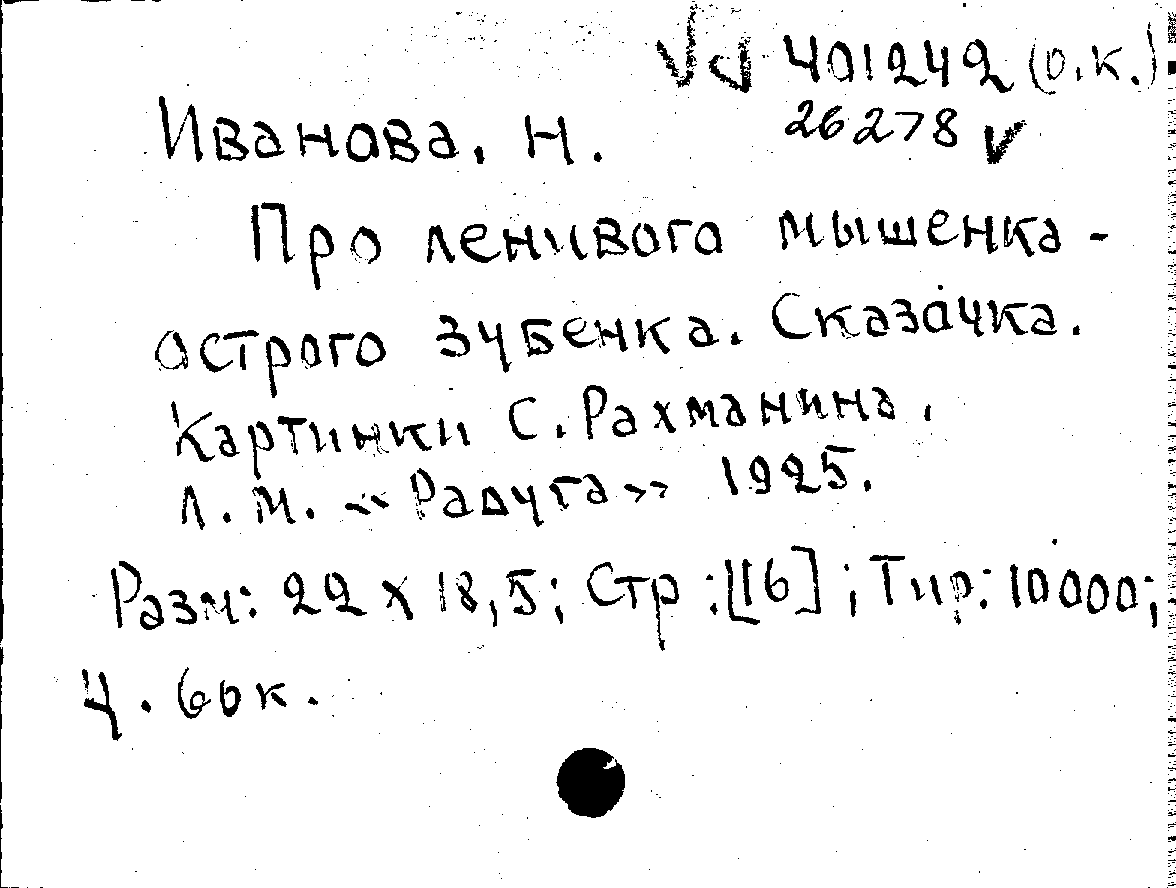 401242 (о.к.)
Иванова, Н. 26278 V
Про ленивого мышенка -
острого зубенка. Сказочка.
Картинки С. Рахманина.
Л. М. «Радуга» 1925.
Разм: 22 x 18,5; Стр: [16]; Тир: 10000;
Ц. 60 к.